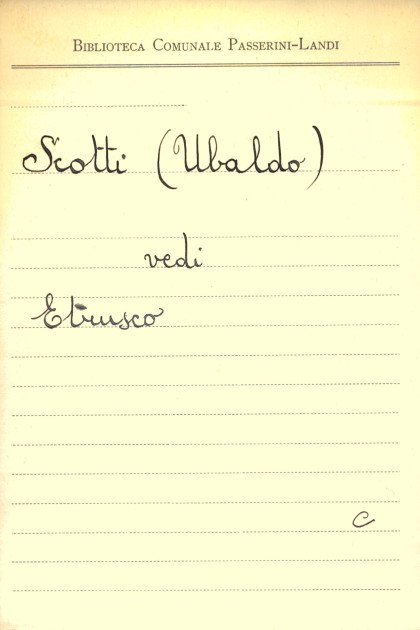 Biblioteca Comunale Passerini-Landi
Scotti (Ubaldo)
vedi
Etrusco
C